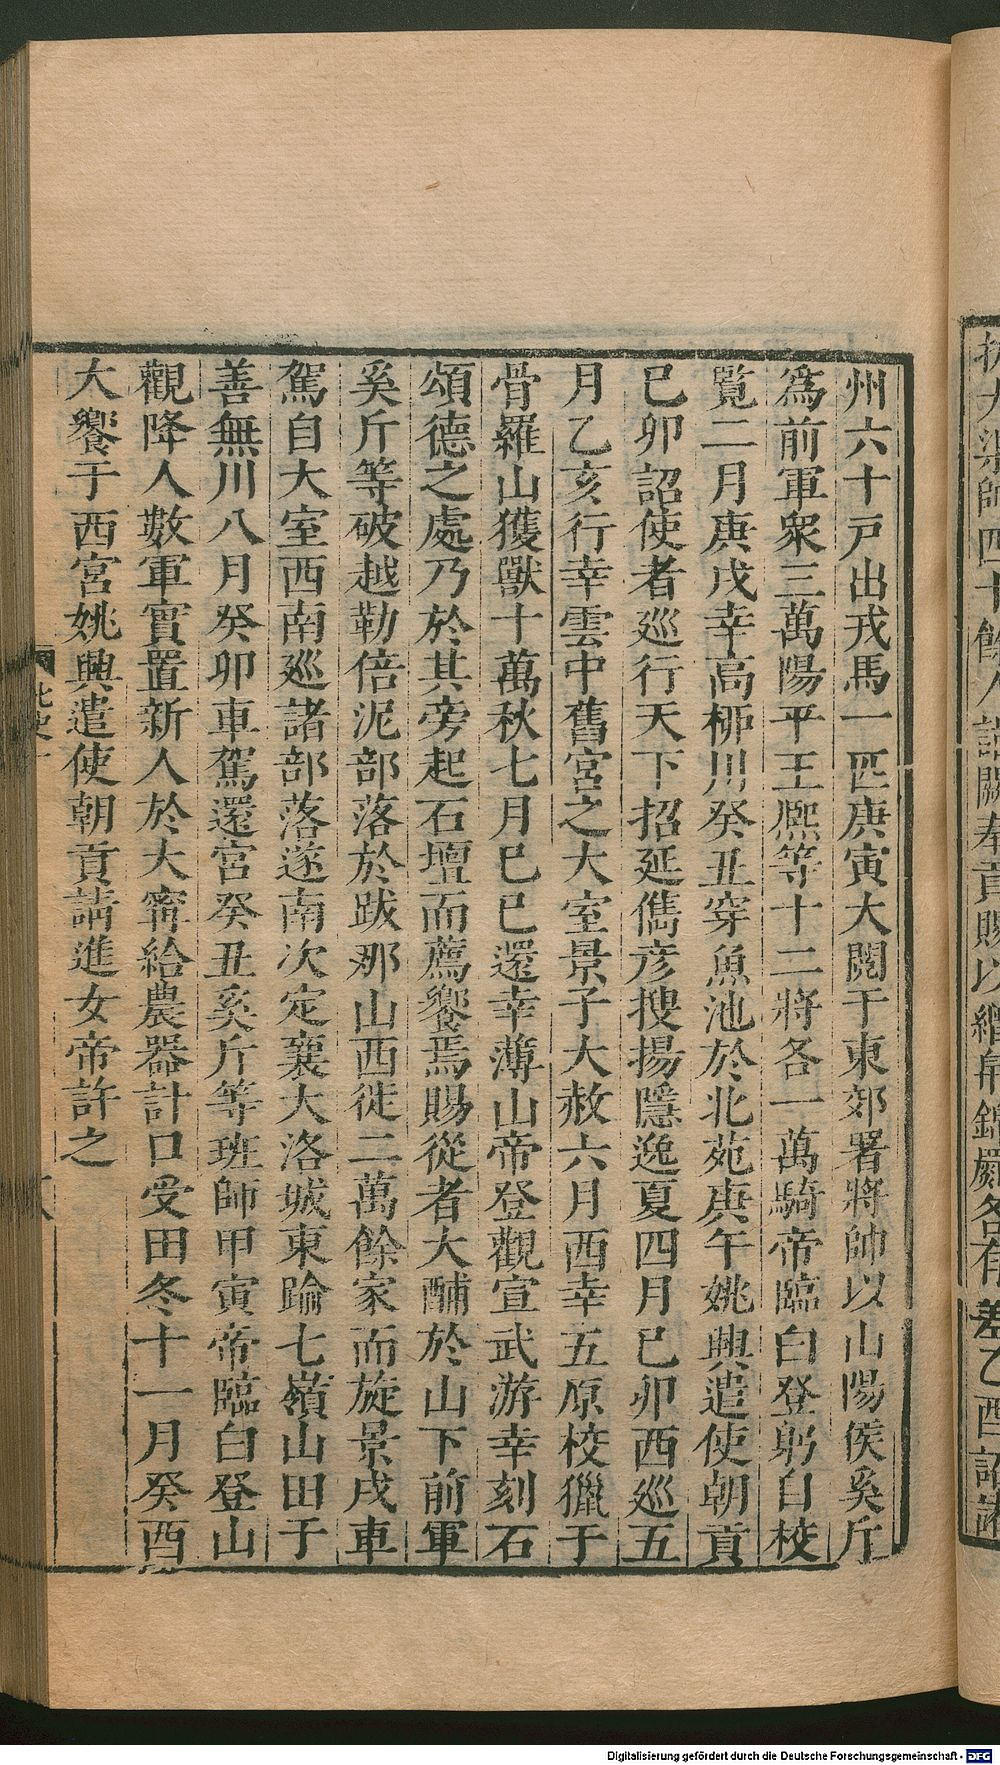 大渠帥四十餘人詣闕奉貢賜以繒帛錦罽各有差乙酉詔諸
州六十戸出戎馬一匹庚寅大閱于東郊署將帥以山陽侯奚斤
爲前軍衆三萬陽平王熙等十二將各一萬騎帝臨白登躬自校
覽二月庚戌幸高柳川癸丑穿魚池於北苑庚午姚興遣使朝貢
巳卯詔使者巡行天下招延儁彦搜揚隱逸夏四月巳卯西巡五
月乙亥行幸雲中舊宮之大室景子大赦六月西幸五原校獵于
骨羅山獲獸十萬秋七月巳巳還幸薄山帝登觀宣武游幸刻石
頌德之處乃於其旁起石壇而薦饗焉賜從者大酺於山下前軍
奚斤等破越勒倍泥部落於跋那山西徙二萬餘家而旋景戌車
駕自大室西南巡諸部落遂南次定襄大洛城東踰七嶺山田于
善無川八月癸卯車駕還宮癸丑奚斤等班師甲寅帝臨白登山
觀降人數軍實置新人於大甯給農器計口受田冬十一月癸酉
大饗于西宮姚興遣使朝貢請進女帝許之
北史一
Digitalisierung gefördert durch die Deutsche Forschungsgemeinschaft - DFG